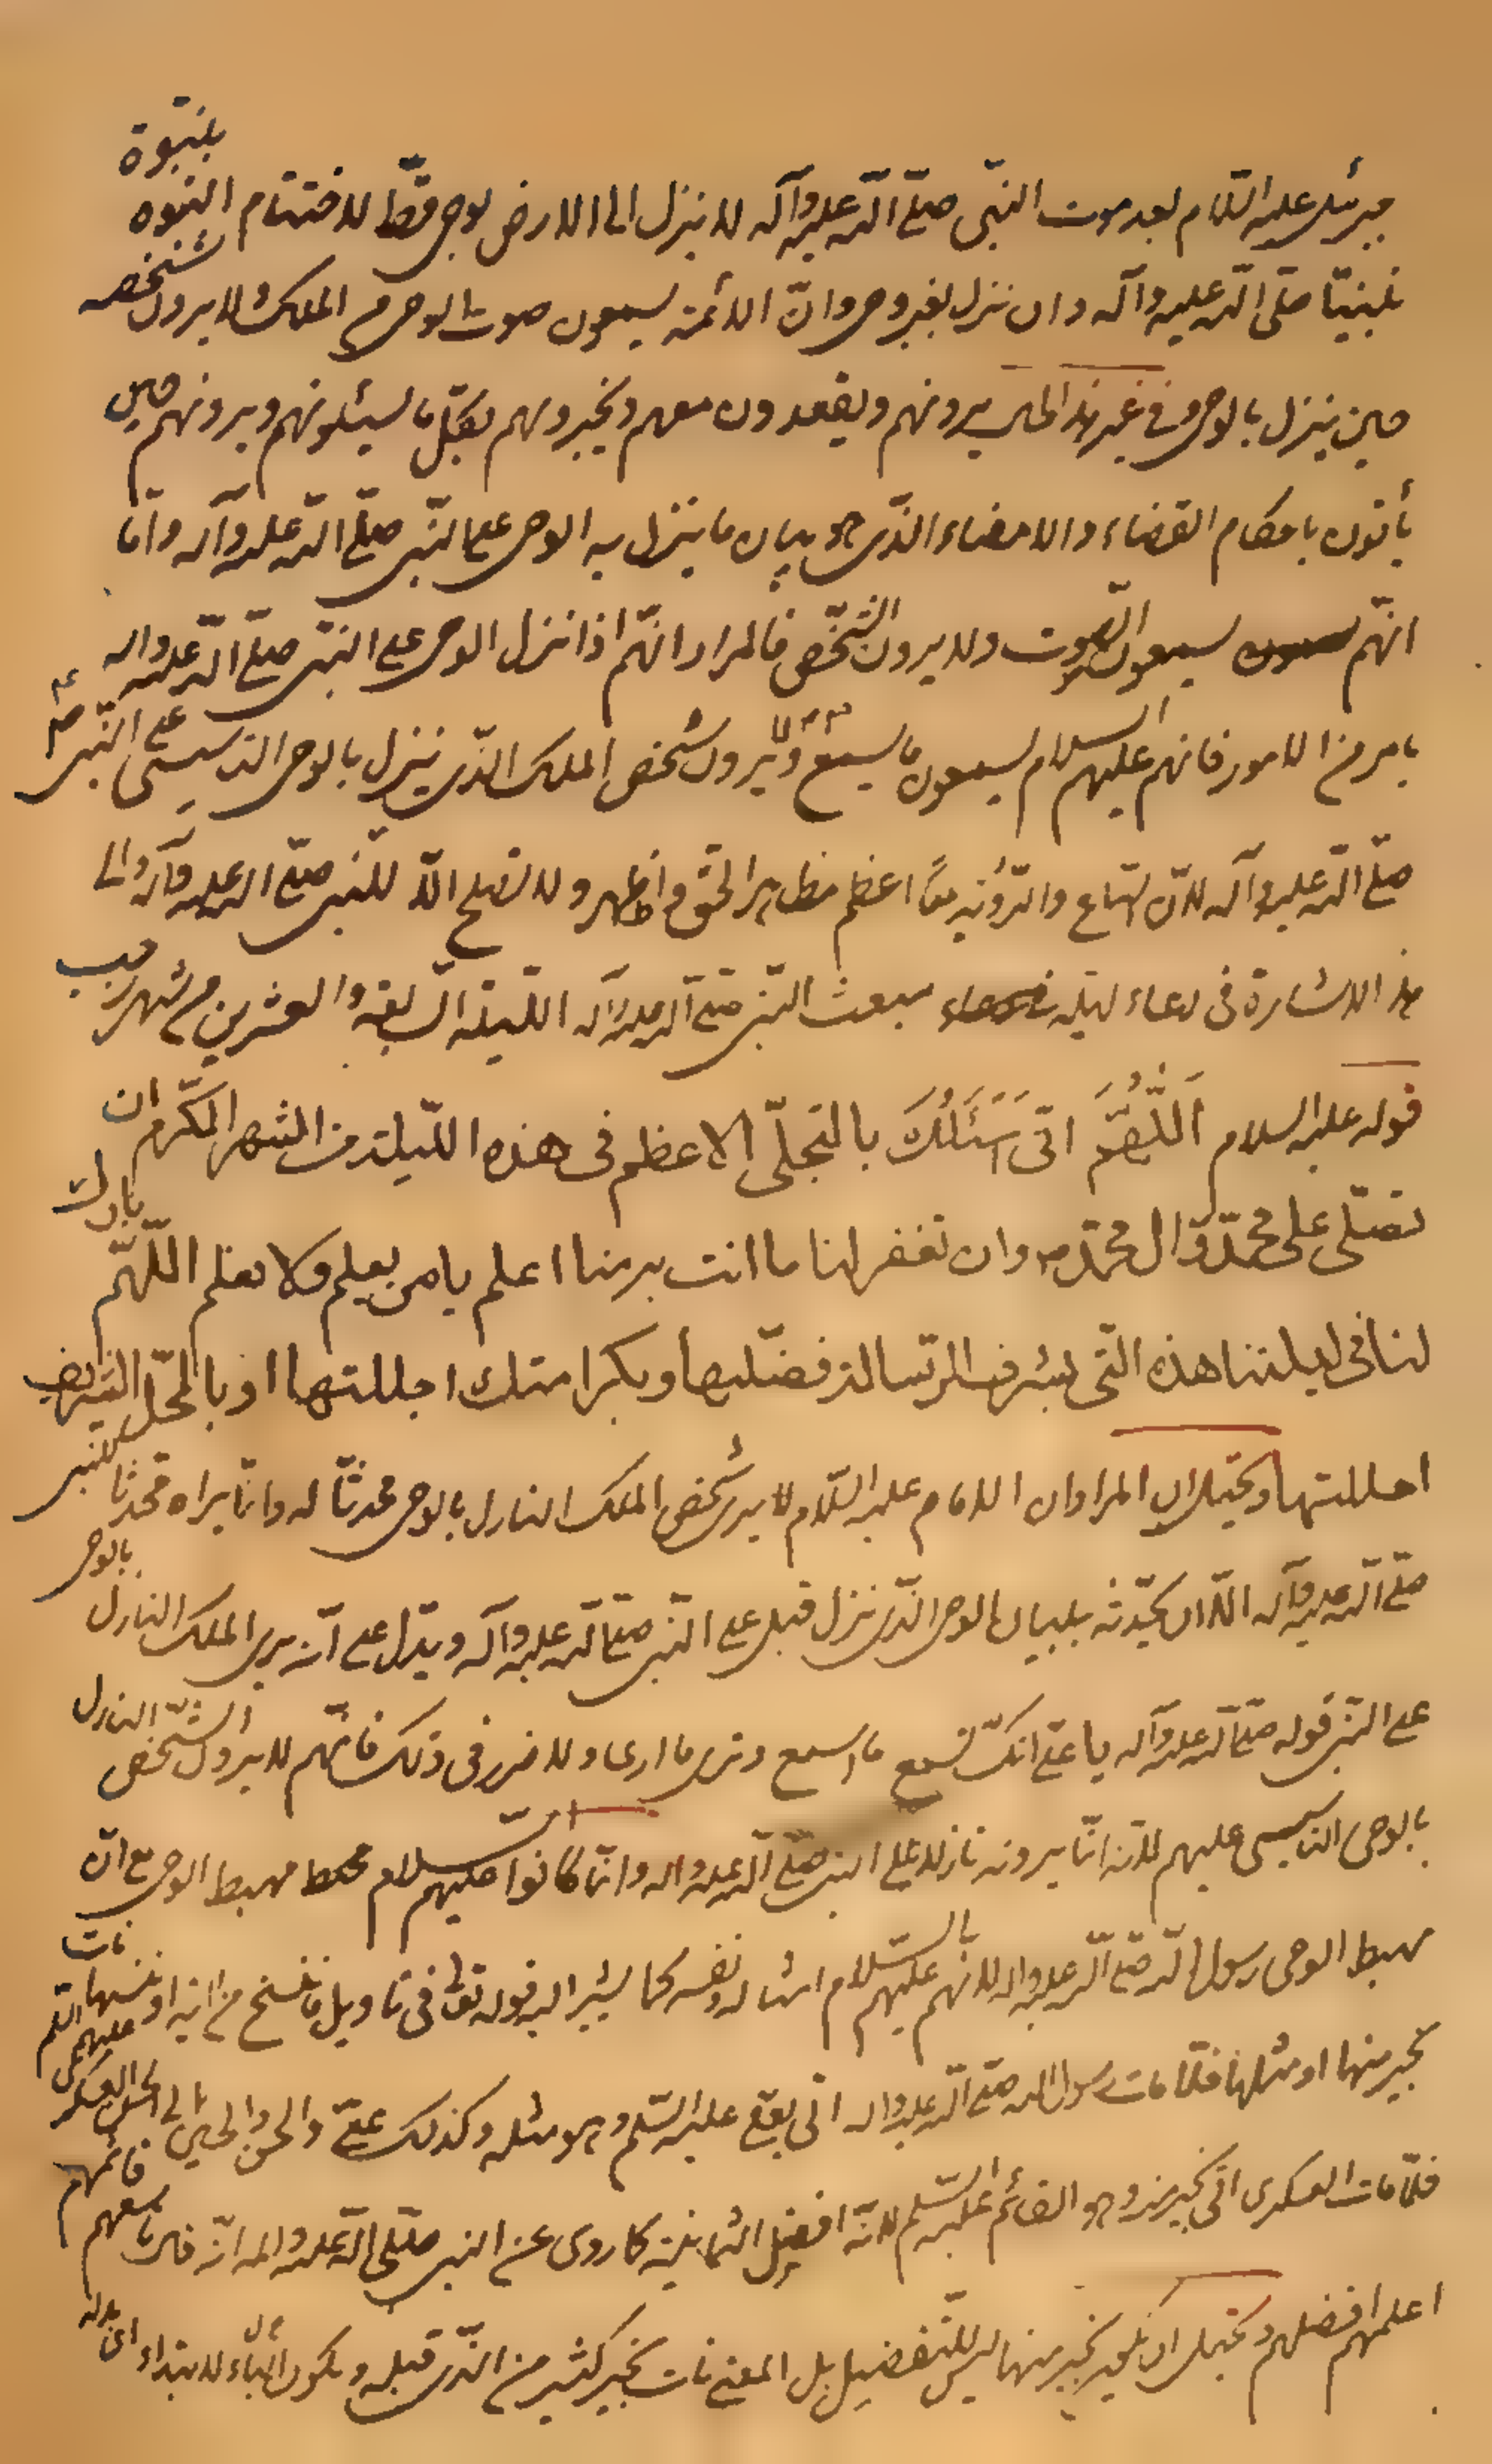 جبرئيل عليه السّلام بعد موت النبّى صلّى اللّه عليه وآله لا ينزل الى الارض بوحى قطّ لاختتام النبوّه بنبوّة
نبينّا صلّى اللّه عليه وآله وان نزل بغير وحى وانّ الائمّة يسمعون صوت الوحى من الملك ولا يرون شخصه
حين ينزل بالوحى وفى غير هذا الحال يرونهم ويقعدون معهم ويخبرونهم بكلّ ما يسئلونهم ويرونهم حين
يأتون باحكام القضاء والامضاء الذّى هو بيان ما ينزل به الوحى على النبّى صلّى اللّه عليه وآله وامّا
انّهم يسمعون الصّوت ولا يرون الشّخص فالمراد انّهم اذا نزل الوحى على النبّى صلّى اللّه عليه واله
بامر من الامور فانهم عليهم السلام يسمعون ما يسمع ولا يرون شخص الملك الذّى ينزل بالوحى التأسيسى على النّبى
صلّى اللّه عليه وآله لانّ السّماع والرّؤية معًا اعظم مظاهر الحقّ واظهر ولا تصلح الّا للنّبى صلّى اللّه عليه وآله والى
هذا الاشارة فى دعاء ليلة مبعث النّبى صلّى اللّه عليه وآله اللّيلة السّابعة والعشرين من شهر رجب
قوله عليه السلام اَللّهُمَّ انّى اَسْئَلُكَ بالتجلّى الاعظم فى هذه اللّيلة من الشهر المكّرم ان
تصلّى على محمّد وال محمّد وان تغفر لنا ما انت به منا اعلم يا من يعلم ولا نعلم اللّهمّ بارك
لنا فى ليلتنا هذه التّى بشرف الرّسالة فضّلتها وبكرامتك اجللتها او بالمحلّ الشريف
احللتها ويحتمل ان المراد ان الامام عليه السّلام لا يرى شخص الملك النازل بالوحى محدثًا له وانّما يراه محدّثا للنّبى
صلّى اللّه عليه وآله الّا ان يحدّثه ببيان الوحى الذّى نزل قبل على النّبى صلّى اللّه عليه وآله ويدّل على انّه يرى الملك النازل بالوحى
على النّبى قوله صلّى اللّه عليه وآله يا علىّ انّك تسمع ما اسمع وترى ما ارى ولا ضرر فى ذلك فانّهم لا يرون الشّخص النازل
بالوحى التأسيسى عليهم لانّه انّما يرونه نازلا على النبى صلّى اللّه عليه واله وانّما كانوا عليهم السّلام مهبط الوحى مع انّ
مهبط الوحى رسول اللّه صلّى اللّه عليه واله لانهم عليهم السّلام امثاله ونفسه كما يشير اليه قوله تعالى فى تاويل ما ننسخ من اية او ننسها نات
بخير منها او مثلها فلمّا مات رسول اللّه صلّى اللّه عليه واله اتى بعلىّ عليه السّلم وهو مثله وكذلك علىّ والحسن والحسين الى الحسن العسكرى عليهم السّلم
فلمّا مات العسكرى اتى بخير منه وهو القائم عليه السّلم لانّه افضل الثمانية كما روى عن النبى صلّى اللّه عليه واله انّه قال تاسعهم قائمهم
اعلمهم افضلهم ويحتمل ان يكون بخير منها ليس للتّفضيل بل المعنى نات بخير كثير من الذّى قبله ويكون من البّاء للابتداء اى بدله